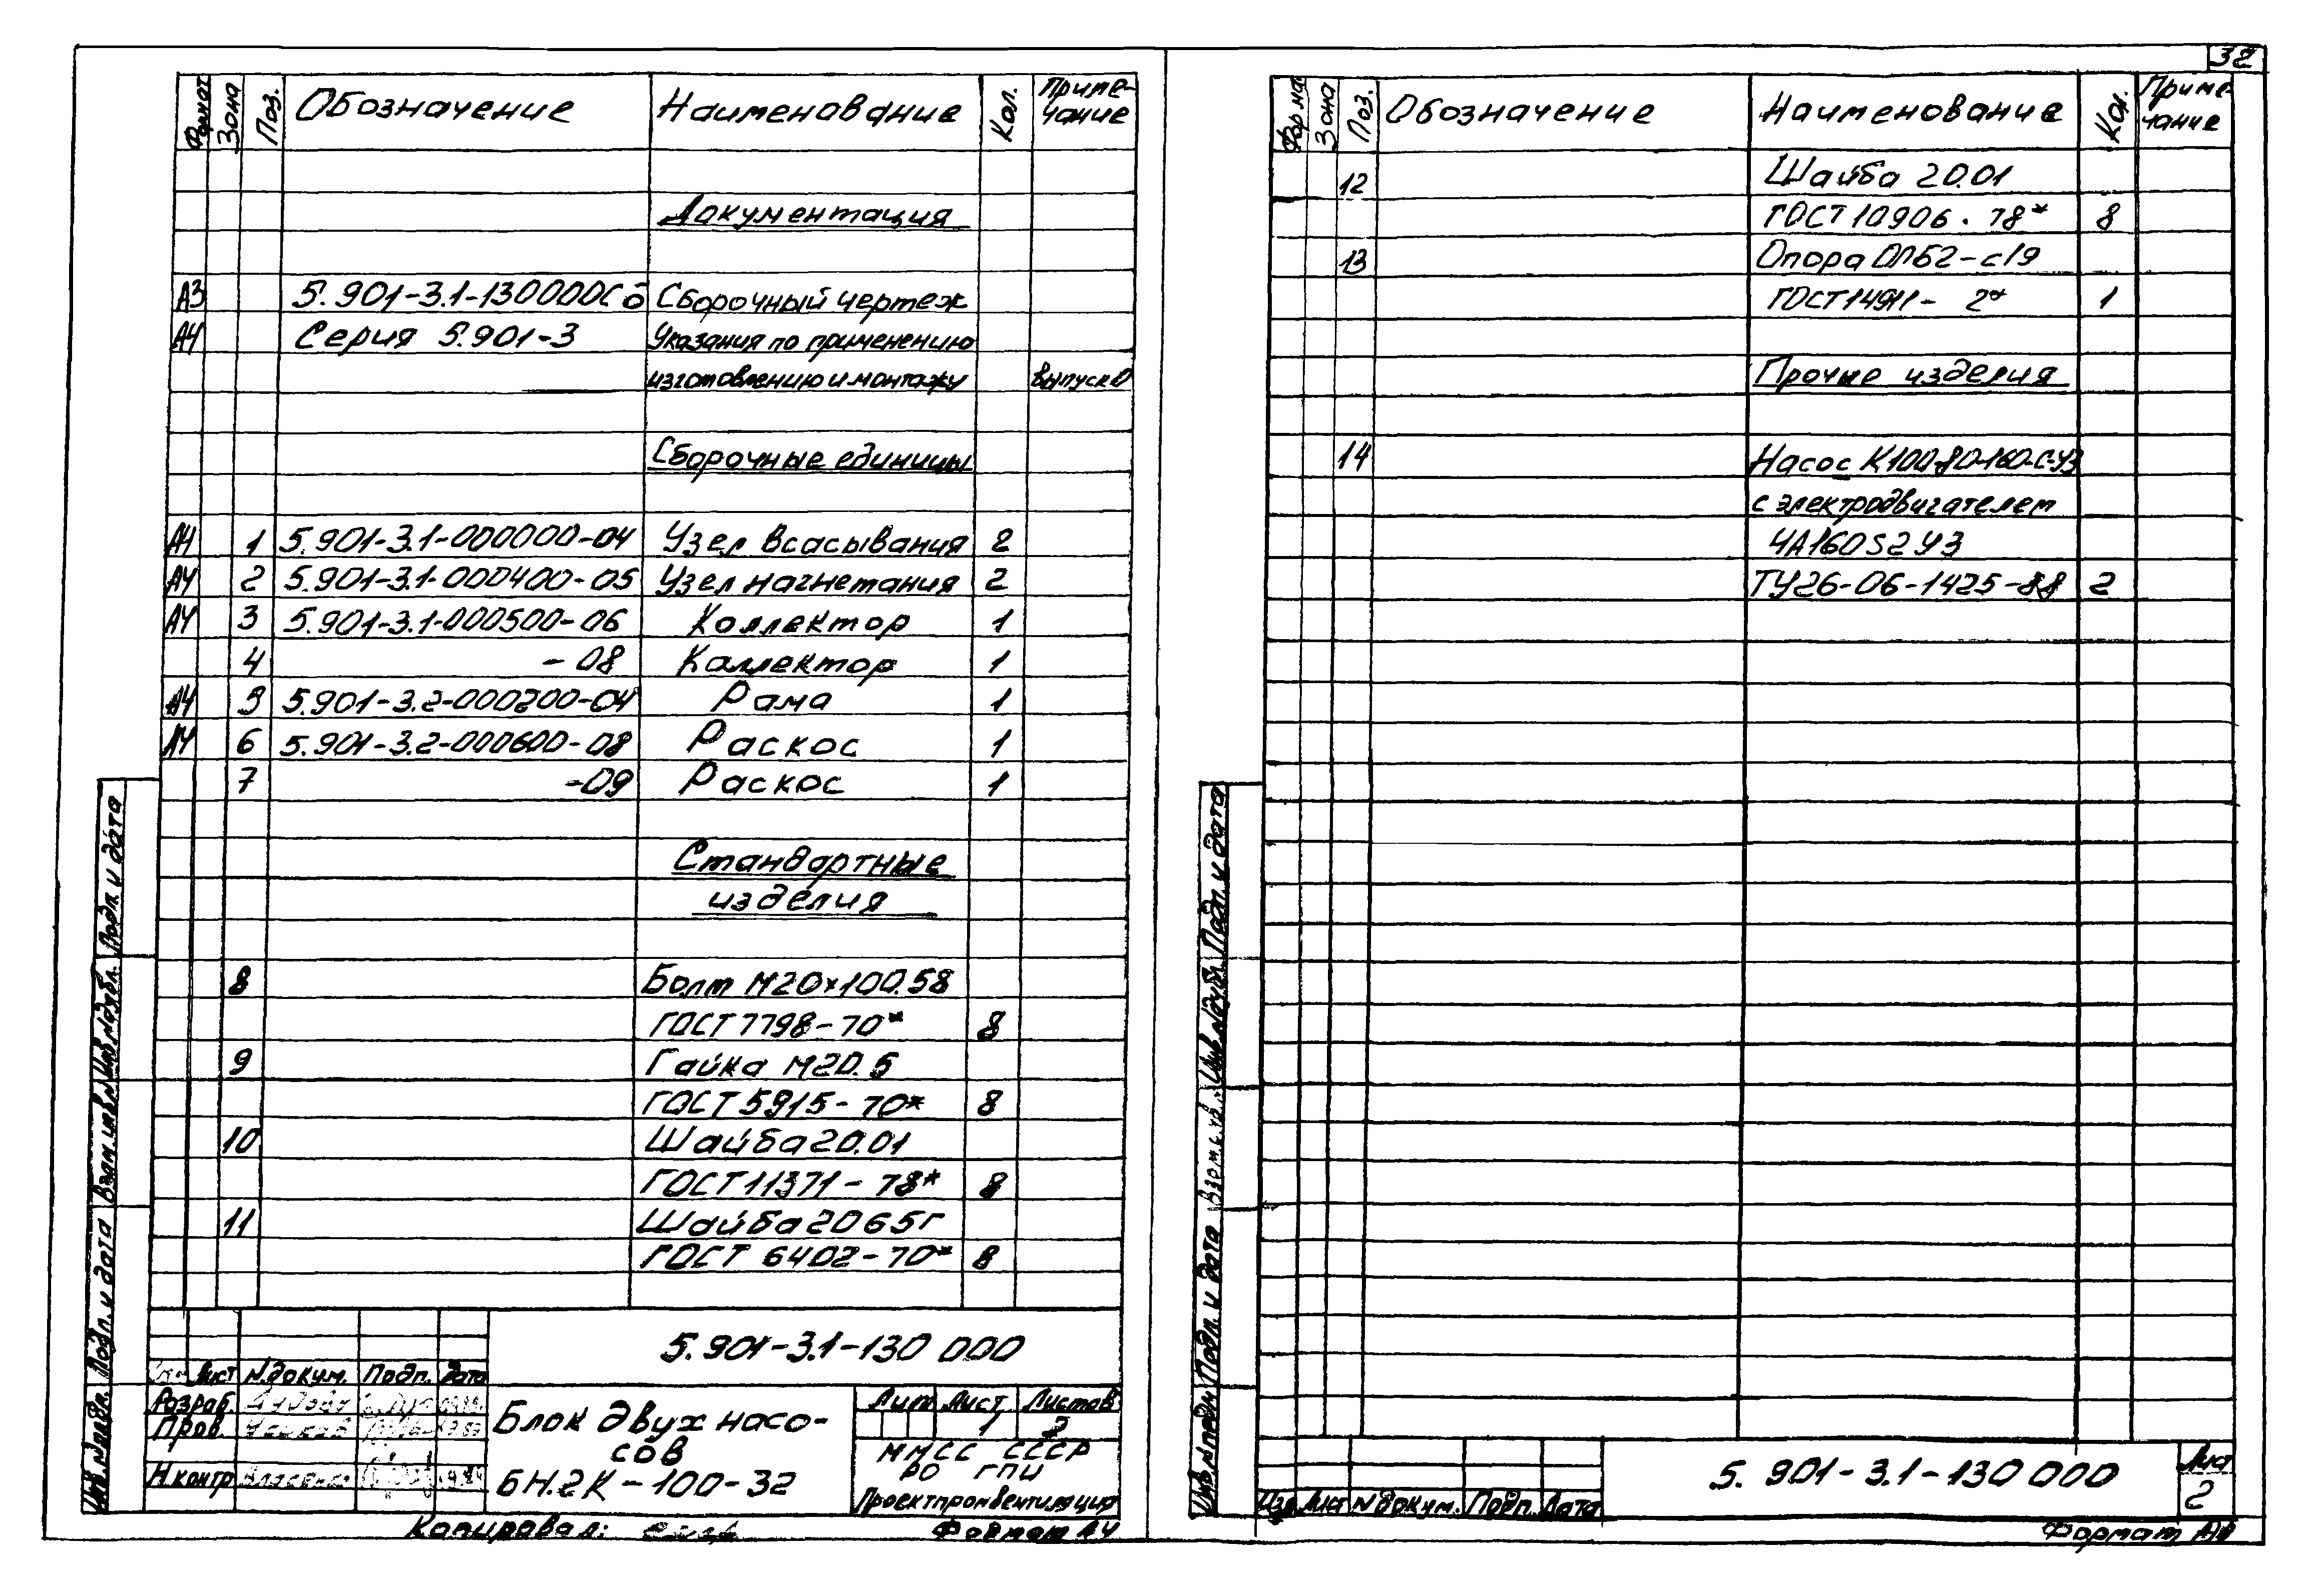 32
Формат Зона Поз. Обозначение Наименование Кол. Приме-
чание
Документация
А3 5.901-3.1-130000Сб Сборочный чертеж
А4 Серия 5.901-3 Указания по применению
изготовлению и монтажу выпуск 0
Сборочные единицы
А4 1 5.901-3.1-000000-04 Узел всасывания 2
А4 2 5.901-3.1-000400-05 Узел нагнетания 2
А4 3 5.901-3.1-000500-06 Коллектор 1
4 -08 Каллектор 1
А4 5 5.901-3.2-000200-04 Рама 1
А4 6 5.901-3.2-000600-08 Раскос 1
7 -09 Раскос 1
Стандартные
изделия
8 Болт М20×100.58
ГОСТ 7798-70* 8
9 Гайка М20.5
ГОСТ 5915-70* 8
10 Шайба 20.01
ГОСТ 11371-78* 8
11 Шайба 20 65г
ГОСТ 6402-70* 8
5.901-3.1-130 000
Лист N докум. Подп. Дата
Разраб.
Пров.
Н.контр.
Блок двух насо-
сов
БН.2К-100-32
Лит Лист Листов
1 2
ММСС СССР
РО ГПИ
Проектпромвентиляция
Копировал:
Формат А4
Инв. N подл. Подп. и дата Взам. инв. N Инв. N дубл. Подп. и дата
Формат Зона Поз. Обозначение Наименование Кол. Приме-
чание
12 Шайба 20.01
ГОСТ 10906-78* 8
13 Опора ОПБ2-с19
ГОСТ 14911- 2* 1
Прочие изделия
14 Насос К100-80-160-С-У3
с электродвигателем
4А160S2У3
ТУ26-06-1425-88 2
5.901-3.1-130 000
Лист
2
Изм Лист N докум. Подп. Дата
Формат
Инв. N подл Подп. и дата Взам. инв. N Инв. N дубл. Подп. и дата